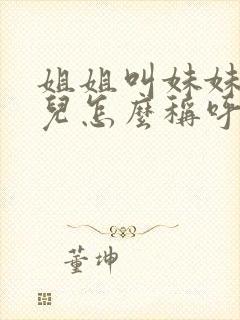 姐姐叫妹妹
兒怎麼稱呼
董坤